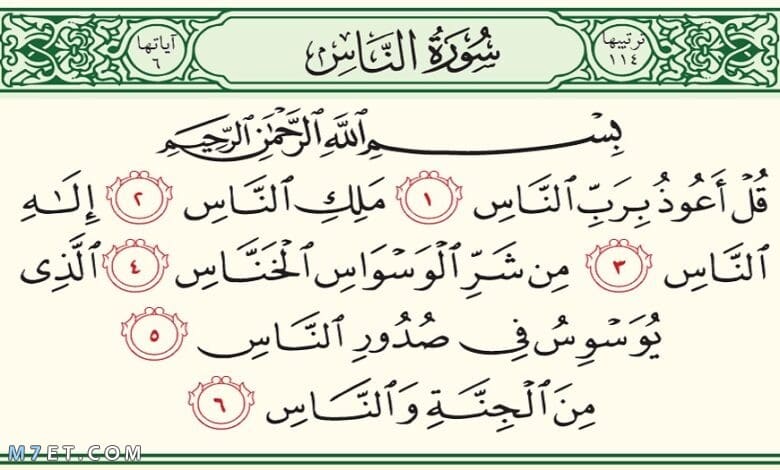 ترتيبها ١١٤ سُورَةُ النَّاسِ آياتها ٦
بِسْمِ اللَّهِ الرَّحْمَٰنِ الرَّحِيمِ
قُلْ أَعُوذُ بِرَبِّ ٱلنَّاسِ ١ مَلِكِ ٱلنَّاسِ ٢ إِلَٰهِ
ٱلنَّاسِ ٣ مِن شَرِّ ٱلْوَسْوَاسِ ٱلْخَنَّاسِ ٤ ٱلَّذِى
يُوَسْوِسُ فِى صُدُورِ ٱلنَّاسِ ٥
مِنَ ٱلْجِنَّةِ وَٱلنَّاسِ ٦
M7ET.COM